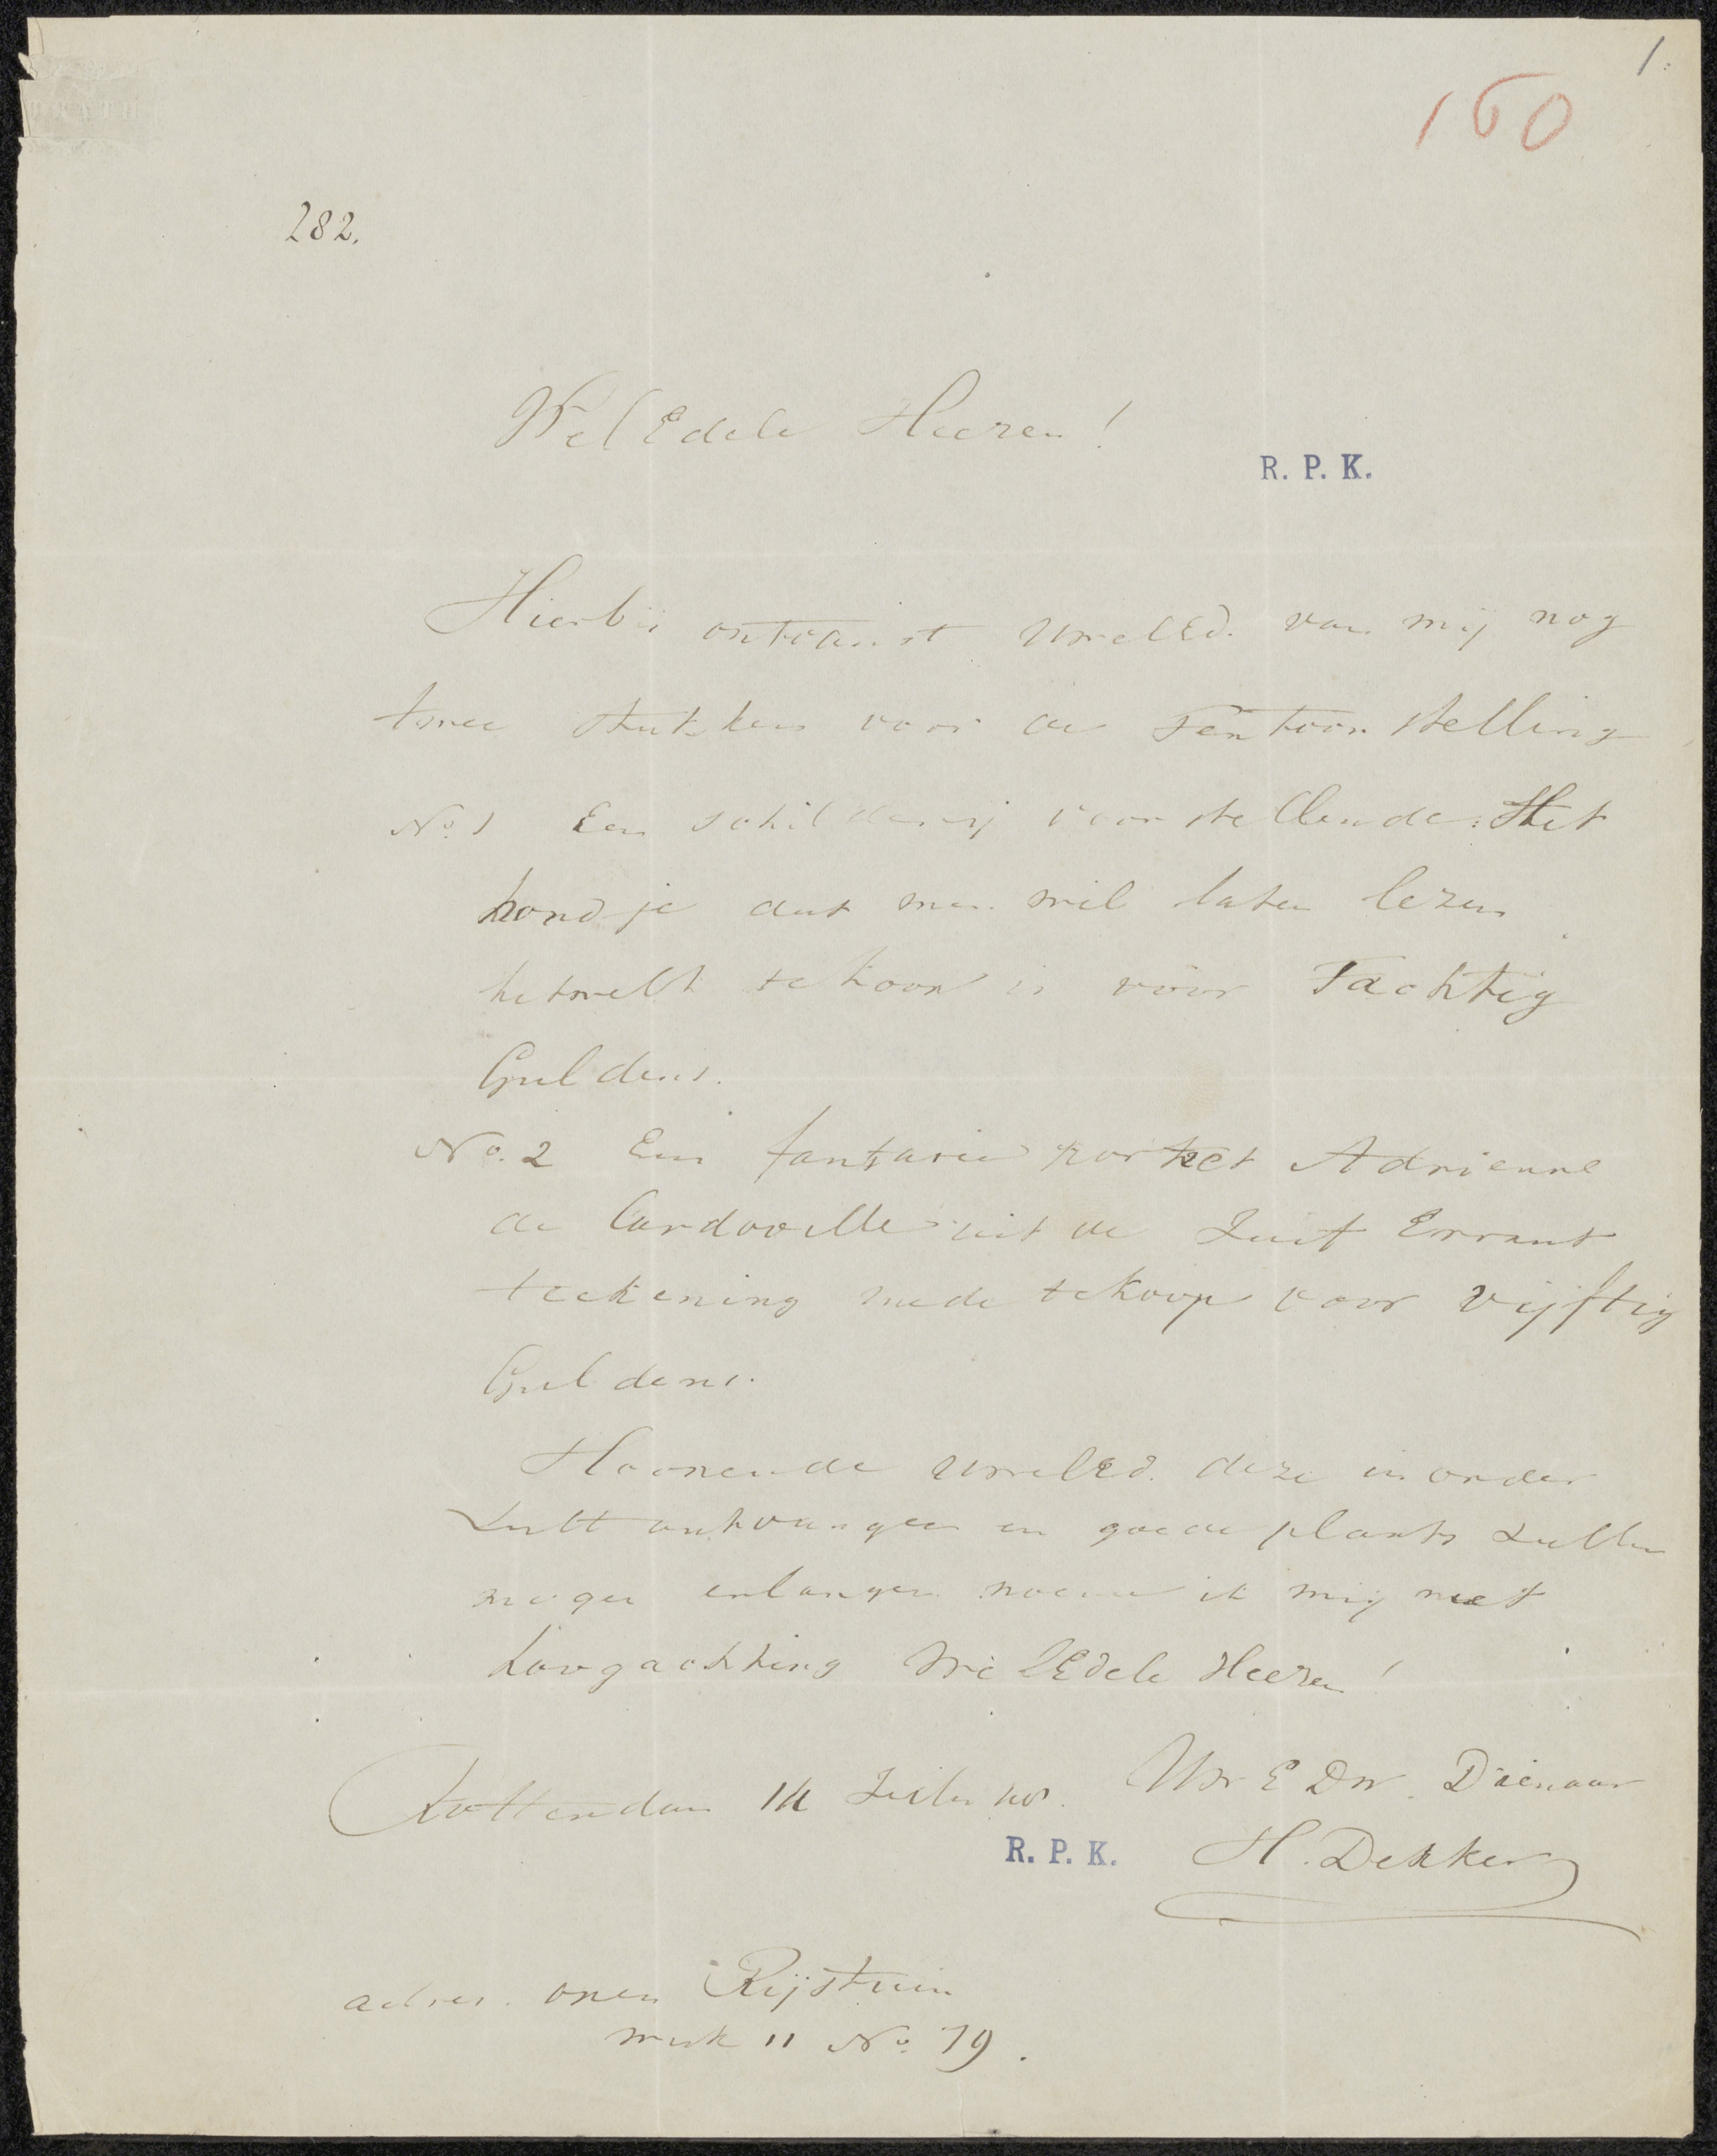 1.
160
282.
WelEdele Heeren!
R. P. K.
Hierbij ontvangt UwelEd. van mij nog
twee stukken voor de Tentoonstelling
No. 1 Een schilderij voorstellende: Het
hondje dat men wil laten lezen
hetwelk te koop is voor Tachtig
Guldens.
No. 2 Een fantasie portret Adrienne
de Cardoville uit de Juif Errant
teekening mede te koop voor vijftig
Guldens.
Hoopende UwelEd. deze in order
zult ontvangen en goede plaats zullen
mogen erlangen noeme ik mij met
hoogachting WelEdele Heeren!
Rotterdam
UwEDw. Dienaar
R. P. K.
H. Dekker
adres. open Rijstuin
wijk 11 No. 79.